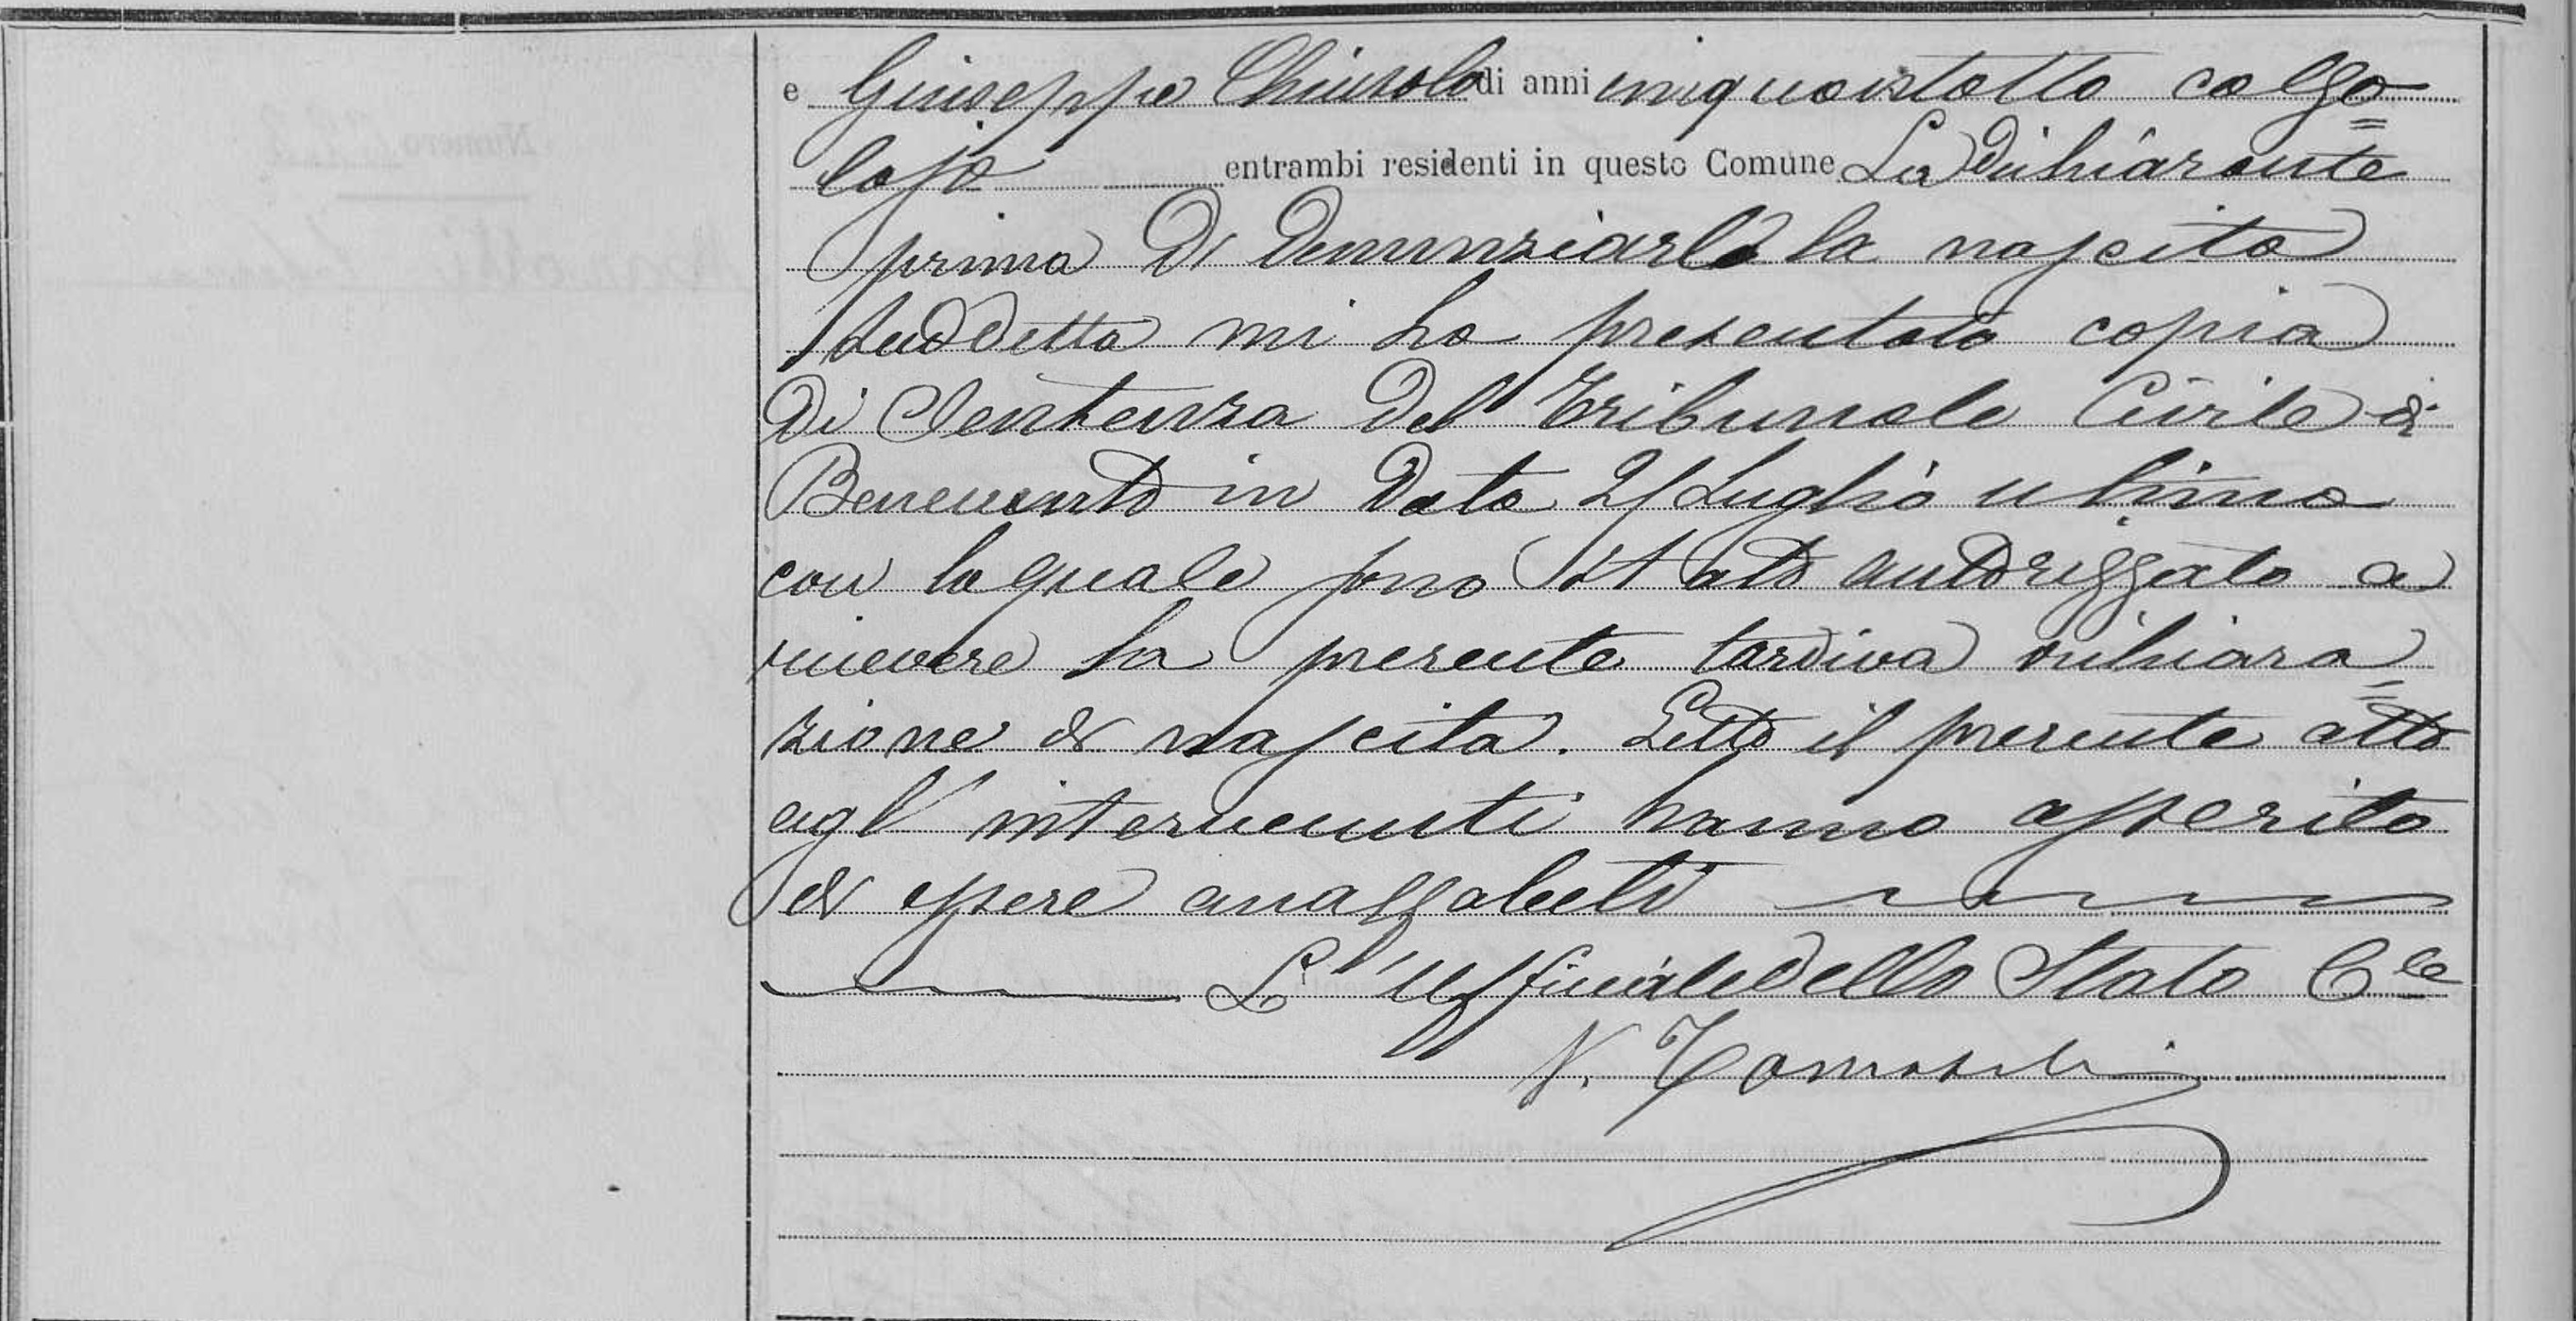 e Giuseppe Chiusolo di anni cinquantotto calzo=
lajo entrambi residenti in questo Comune La dichiarante
prima di denunziarla la nascita
suddetta mi ha presentato copia
di Sentenza del Tribunale Civile di
Benevento in data 21 Luglio ultimo
con la quale sono stato autorizzato a
ricevere la presente tardiva dichiara=
zione di nascita. Letto il presente atto
agl'intervenuti hanno asserito
di essere analfabeti
L'Ufficiale dello Stato C.le
N. Tomaselli
Numero